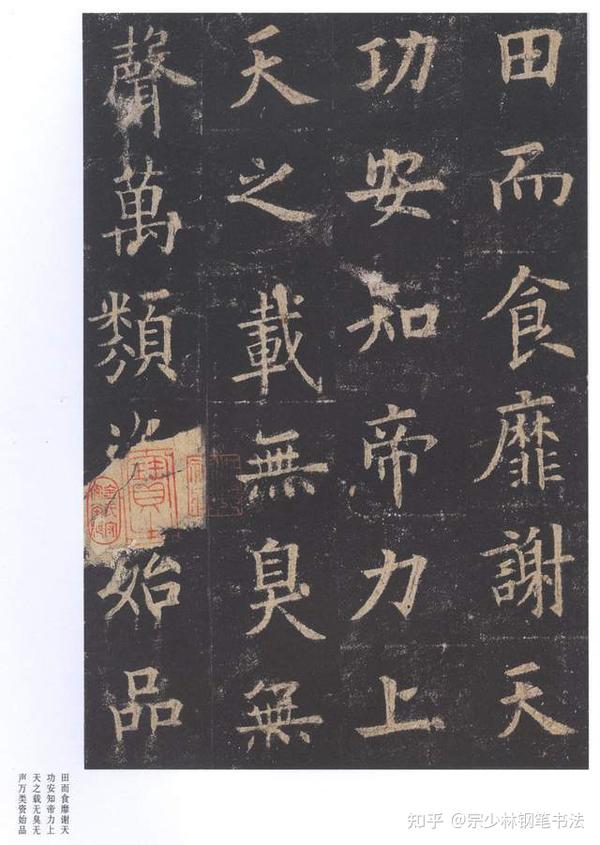 田而食靡謝天
功安知帝力上
天之載無臭無
聲萬類始品
田而食靡谢天
功安知帝力上
天之载无臭无
声万类资始品
知乎 @宗少林钢笔书法